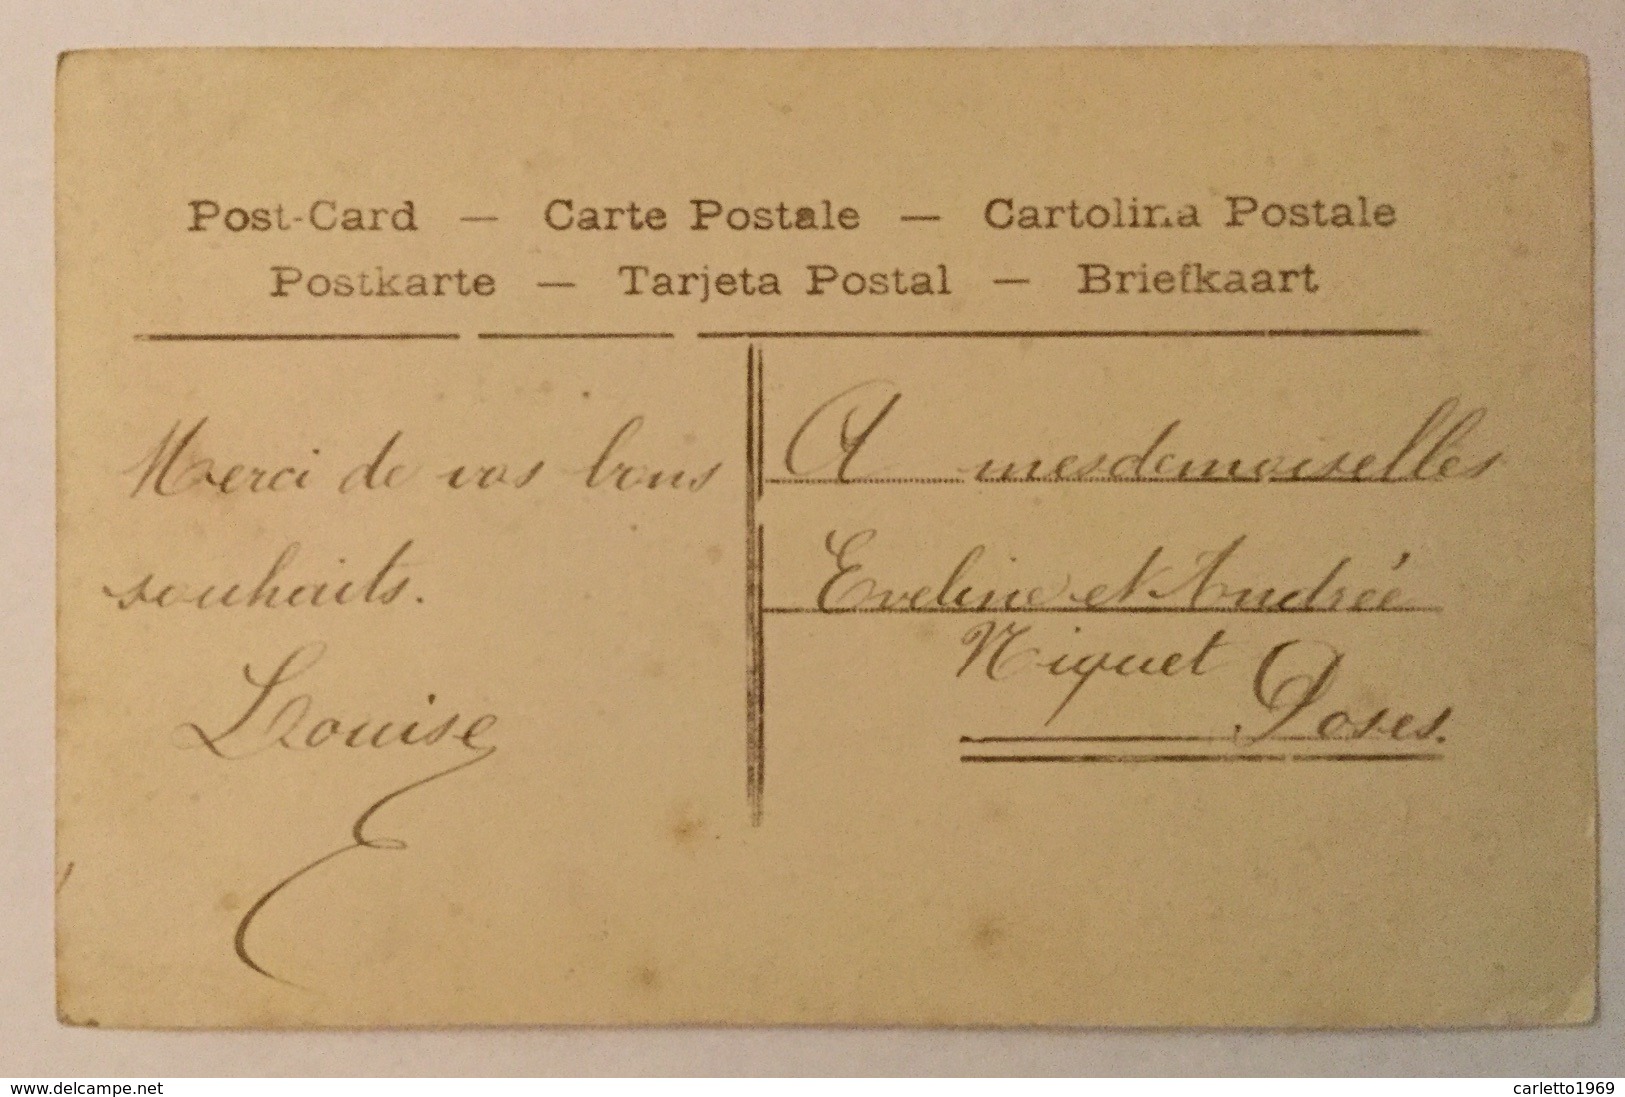 Post-Card — Carte Postale — Cartolina Postale
Postkarte — Tarjeta Postal — Briefkaart
Merci de vos bons
souhaits.
Louise
A mesdemoiselles
Eveline et Andrée
Niquet
Poses.
www.delcampe.net
carletto1969